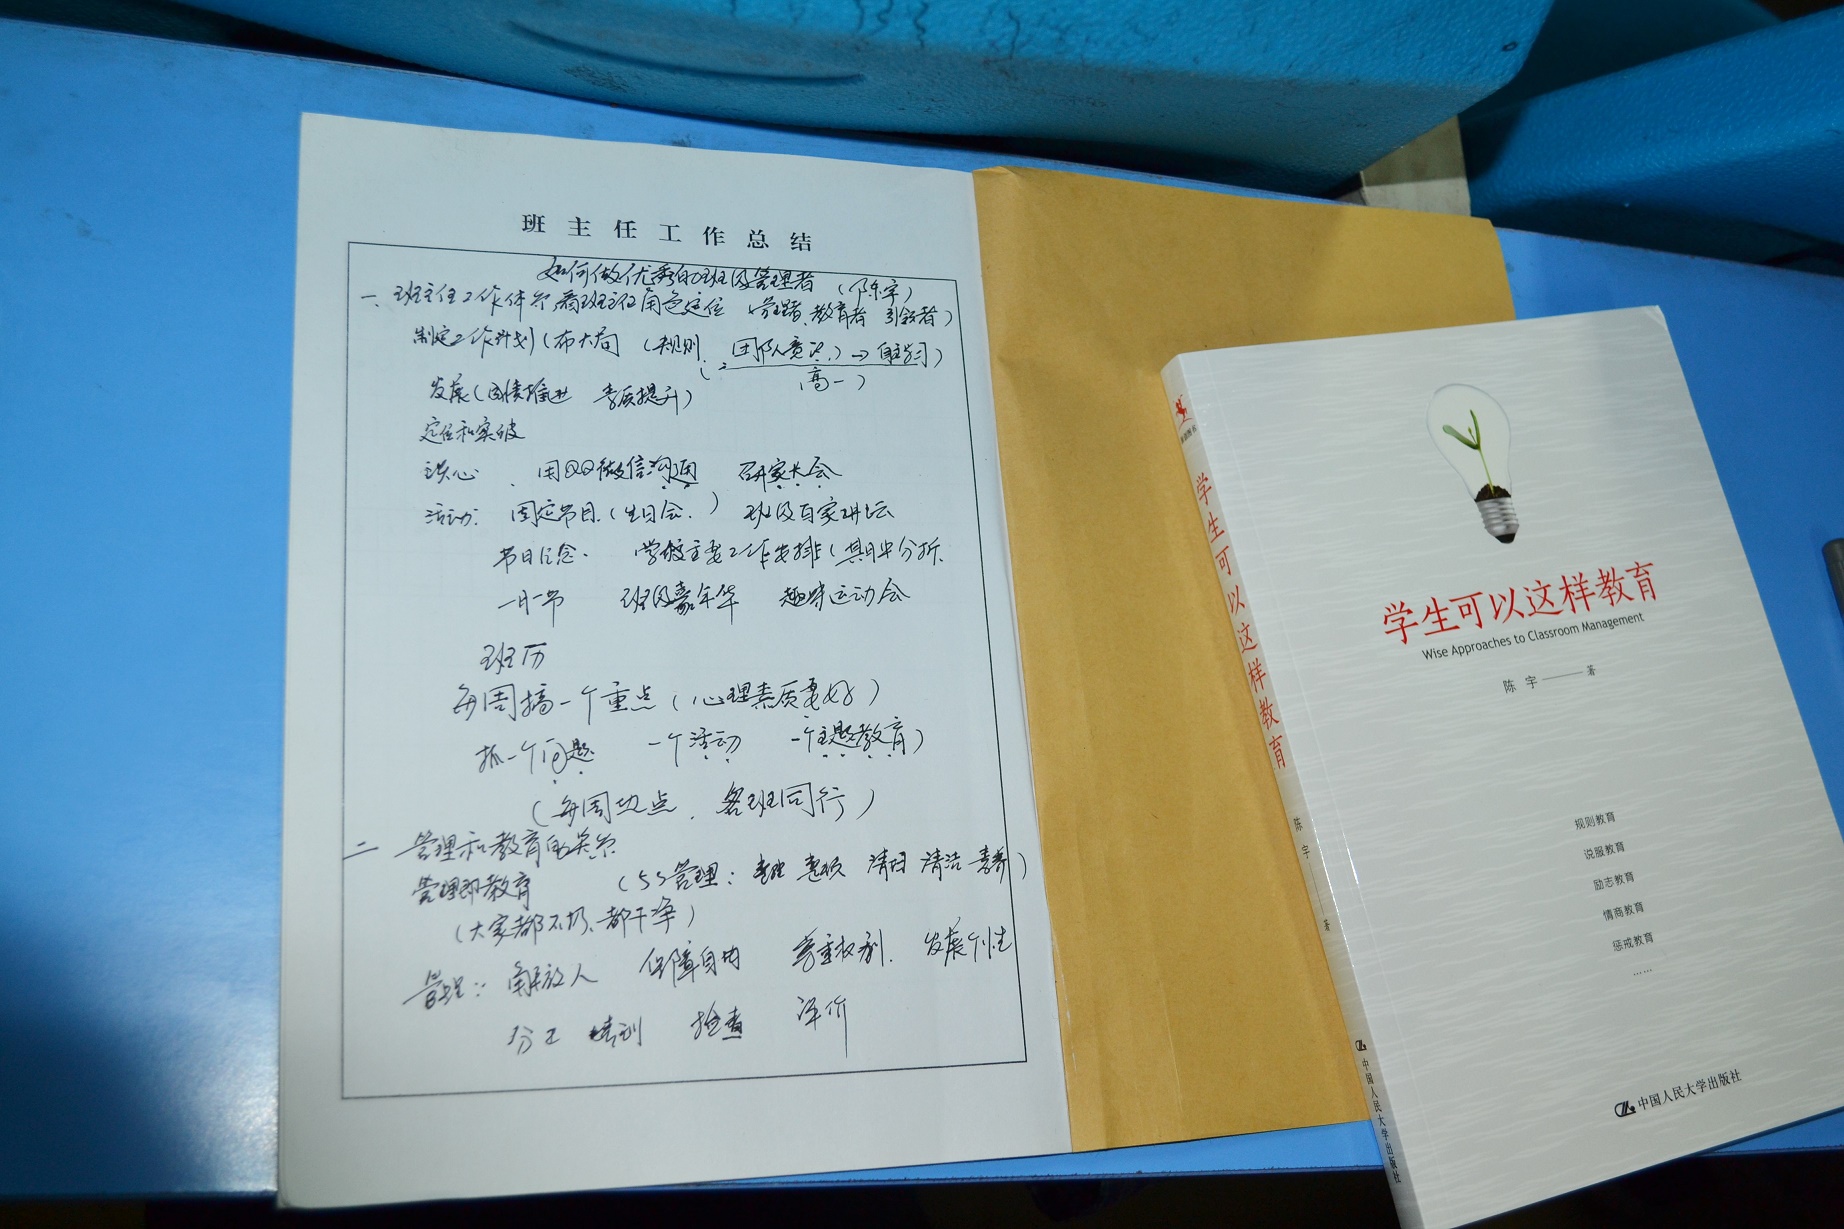 班主任工作总结
如何做优秀的班级管理者（陈宇）
一、班主任工作体系，看班主任角色定位 管理者、教育者 引领者）
制定工作计划（布大局 （规则、团队意识、）→自主学习）
（高一）
发展（围绕推进 素质提升）
定位和突破
谈心 、用QQ微信沟通 研家长会
活动：固定节目（生日会、） 班级百家讲坛
节日纪念、 学校主要工作安排（期中分析、
一月一节 班级嘉年华 趣味运动会
班历
每周搞一个重点（心理素质要好）
抓一个问题 一个活动 一个主题教育）
（每周地点、各班同行）
二 管理和教育的关系
管理即教育 （5S管理：整理 整顿 清扫 清洁 素养）
（大家都不扔、都干净）
管理：解放人 保障自由 尊重权利、发展个性
分工 培训 检查 评价
学生可以这样教育
Wise Approaches to Classroom Management
陈宇——著
规则教育
说服教育
励志教育
情商教育
惩戒教育
……
中国人民大学出版社
学生可以这样教育
陈宇——著
中国人民大学出版社